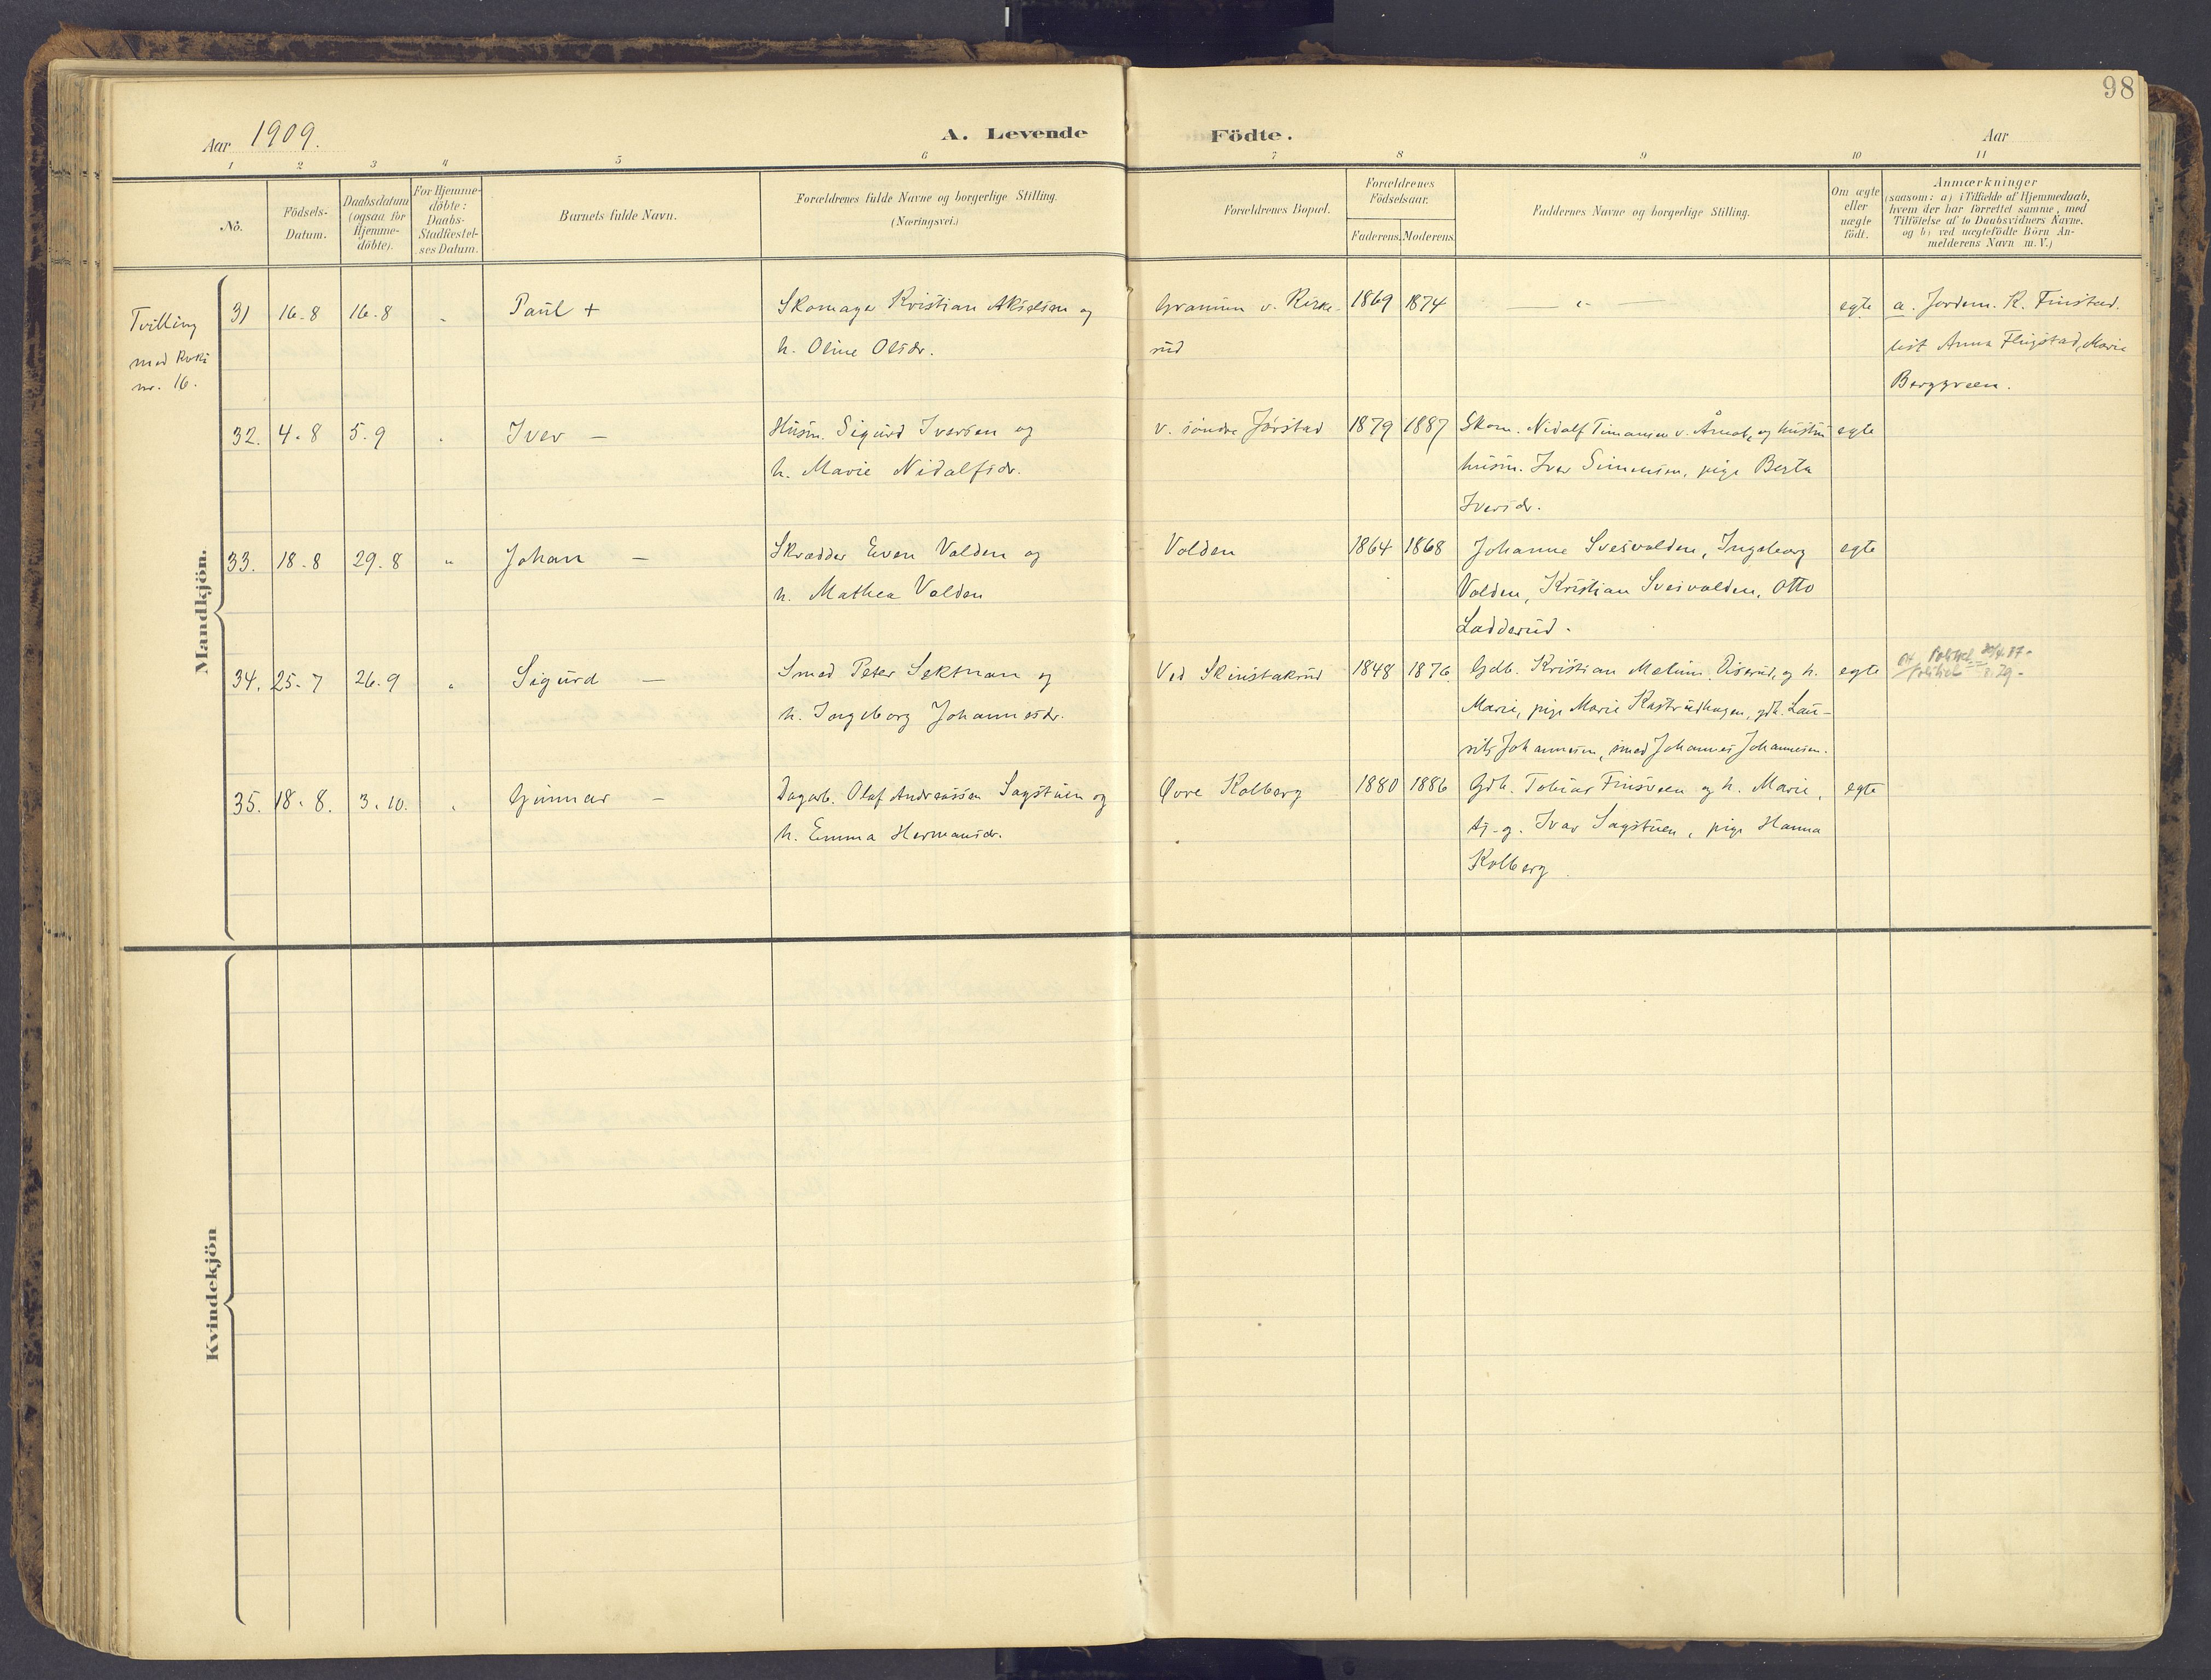 98
Aar 1909.
A. Levende Födte.
Aar
1 2 3 4 5 6 7 8 9 10 11
No.
Födsels-Datum.
Daabsdatum (ogsaa for Hjemme-döbte).
For Hjemme-döbte: Daabs-Stadfæstel-ses Datum.
Barnets fulde Navn.
Forældrenes fulde Navne og borgerlige Stilling.
(Næringsvei.)
Forældrenes Bopæl.
Forældrenes Födselsaar.
Faderens. Moderens.
Faddernes Navne og borgerlige Stilling.
Om ægte eller uægte födt.
Anmærkninger
(saasom: a) i Tilfælde af Hjemmedaab,
hvem der har forrettet samme, med
Tilföielse af to Daabsvidners Navne.
og b) ved uægtefödte Börn An-
melderens Navn m. V.)
Mandkjön.
Tvilling
med
nr. 16.
31 16-8 16-8 Paul + Skomager Kristian Akselsen og Granum v. Kirke- 1869 1874 — " — egte a. Jordem. K. Finstad.
h. Oline Olsdr. rud Anna Flugstad, Marie
Berggreen.
32. 4-8 5-9 Iver — Husm. Sigurd Iversen og v. søndre Jørstad 1879 1887 Skom. Nidolf v. og hustru egte
h. Marie Nidolfsdr. husm. Iver Simensen, pige Berta
Iversdr.
33. 18-8 29-8 " Johan — Skrædder Even Volden og Volden 1864 1868 Johanne Svesvolden, Ingeborg egte
h. Mathea Volden Volden, Kristian Svesvolden, Otto
Ladderud.
34. 25-7 26-9 " Sigurd — Smed Peter Sektnan og Ved Skinstakrud 1848 1876 Gdb. Kristian Mælum og h. egte
h. Ingeborg Johannesdr. Marie, pige Marie Kastrudhagen, gdb. Lau-
rits Johannesen, smed Johannes Johannesen.
35. 18-8. 3-10. " Gunnar — Dagarb. Olaf Andreassen Sagstuen og Øvre Kolberg 1880 1886 Gdb. Tobias Finsveen og h. Marie, egte
h. Emma Hermansdr. tj-g. Ivar Sagstuen, pige Hanna
Kolberg
Kvindekjön